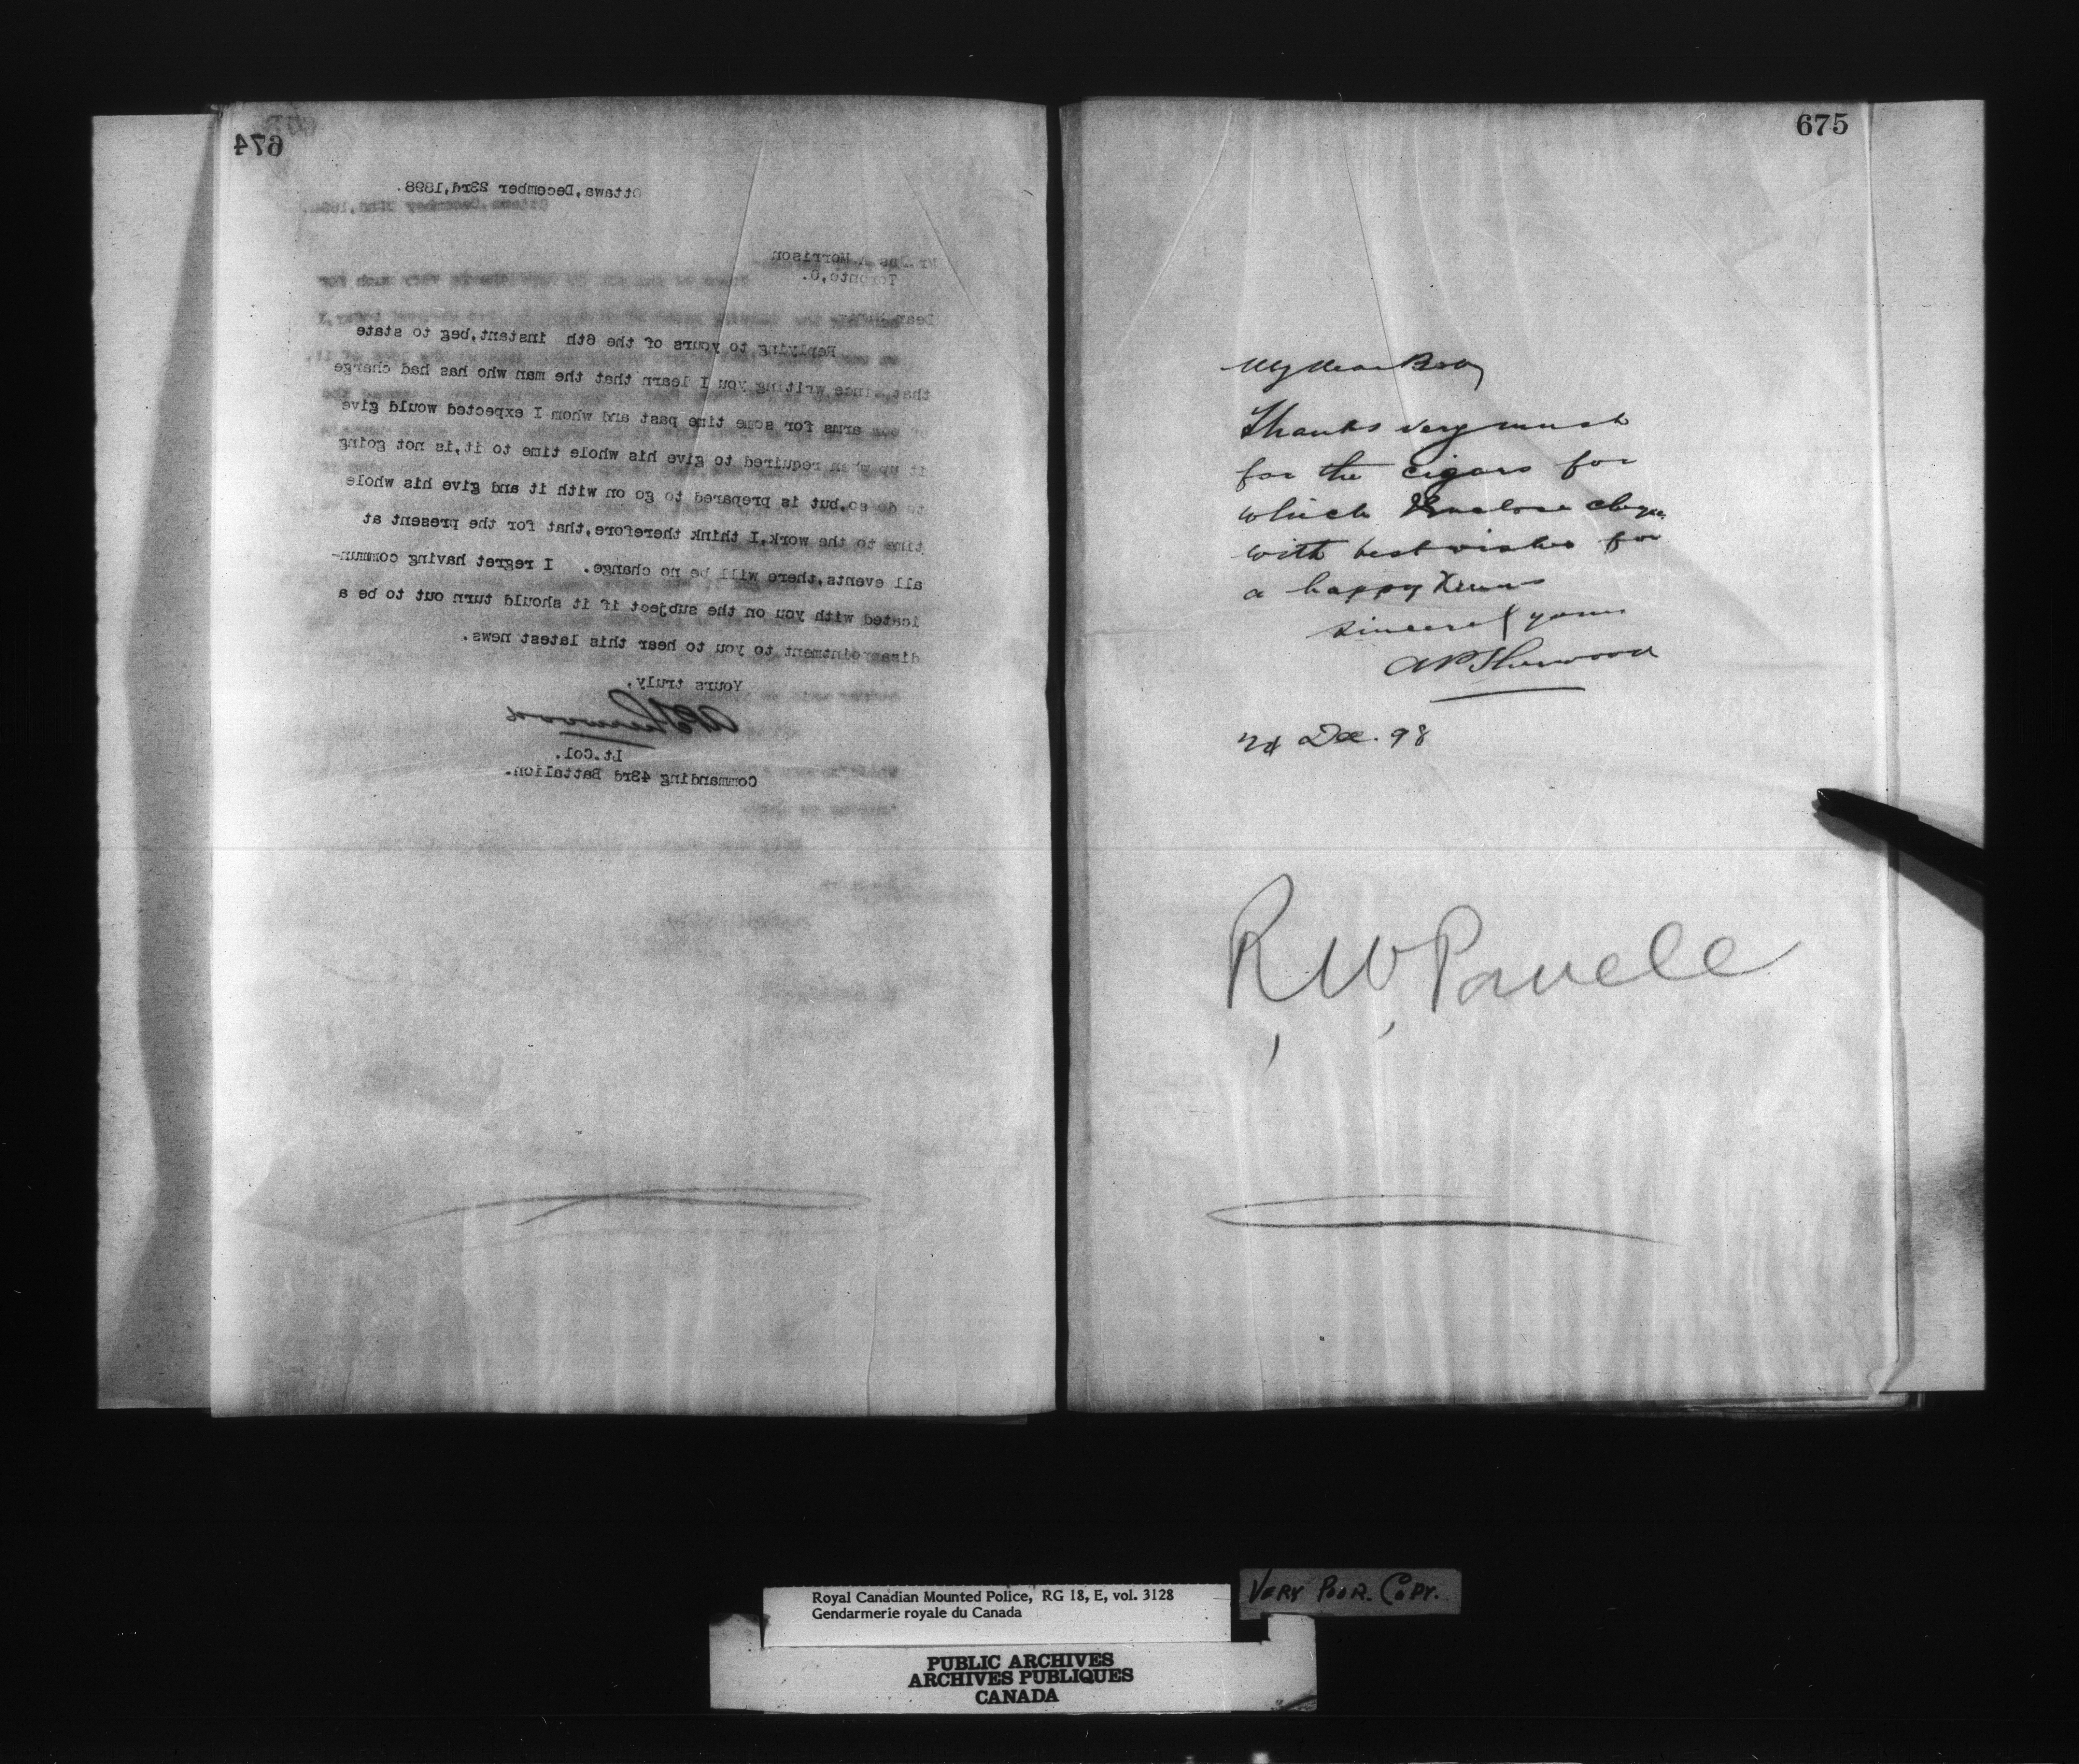 674
Ottawa, December 23rd, 1898.
Morrison
Toronto, O.
Dear
Replying to yours of the 6th instant, beg to state
that since writing you I learn that the man who has had charge
of our arms for some time past and whom I expected would give
it up when required to give his whole time to it, is not going
to do so, but is prepared to go on with it and give his whole
time to the work, I think therefore, that for the present at
all events, there will be no change. I regret having commun-
icated with you on the subject if it should turn out to be a
disappointment to you to hear this latest news.
Yours truly,
APSherwood
Lt. Col.
Commanding 43rd Battalion.
675
My dear Bob
Thanks very much
for the cigars for
which I enclose cheque
with best wishes for
a happy Xmas
Sincerely yours
APSherwood
24 Dec. 98
R, W, Powell
Royal Canadian Mounted Police, RG 18, E, vol. 3128
Gendarmerie royale du Canada
VERY POOR. COPY.
PUBLIC ARCHIVES
ARCHIVES PUBLIQUES
CANADA